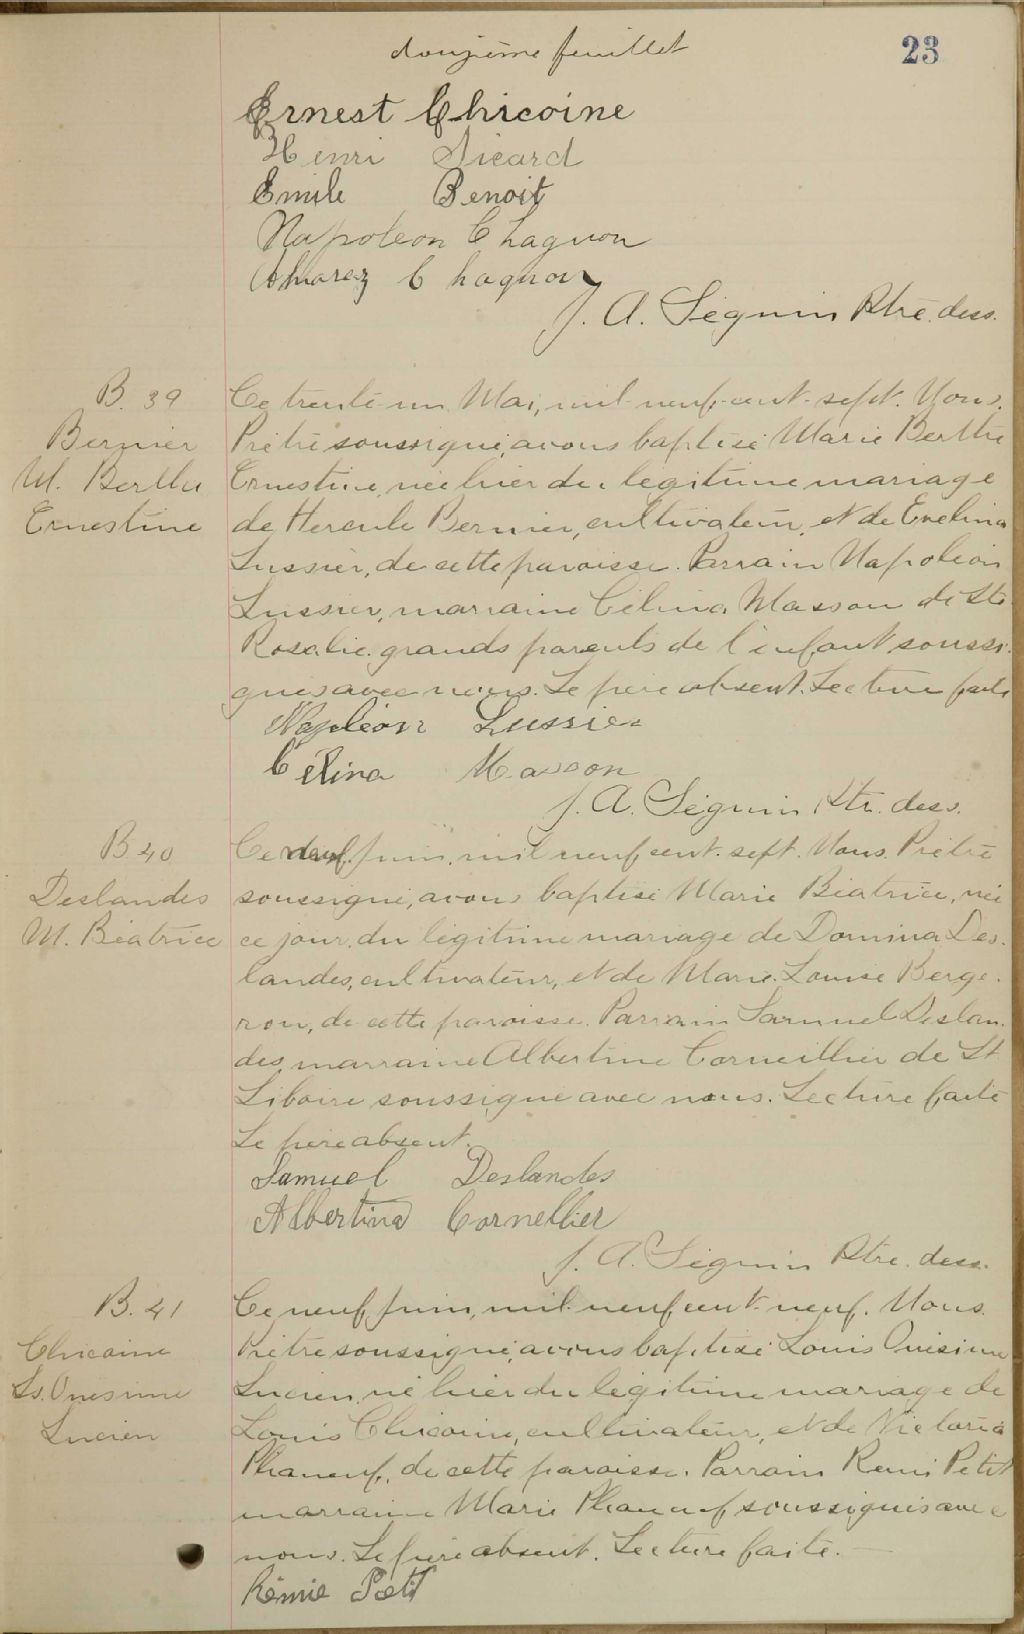 douzième feuillet
23
Ernest Chicoine
Henri Sicard
Emile Benoit
Napoleon Chagnon
Chagnon
J. A. Séguin Ptre. dess.
B. 39
Bernier
M. Berthe
Ernestine
Ce trente-un Mai, mil-neuf-cent-sept. Nous,
Prêtre soussigné, avons baptisé Marie Berthe
Ernestine, née hier du légitime mariage
de Hercule Bernier, cultivateur, et de Evelina
Lussier, de cette paroisse. Parrain Napoléon
Lussier, marraine Célina Masson de Ste
Rosalie grands parents de l'enfant soussi-
gnés avec nous. Le père absent. Lecture faite
Napoléon Lussier
Célina Masson
J. A. Séguin Ptr. dess.
B 40
Deslandes
M. Béatrice
Ce neuf Juin, mil neuf cent. sept. Nous Prêtre
soussigné, avons baptisé Marie Béatrice, née
ce jour, du légitime mariage de Domina Des-
landes, cultivateur, et de Marie Louise Berge-
ron, de cette paroisse. Parrain Samuel Deslan-
des, marraine Albertine Corneillier de St
Liboire soussigné avec nous. Lecture faite
Le père absent.
Samuel Deslandes
Albertina Cornellier
J. A. Séguin Ptre. dess.
B. 41
Chicoine
Ls. Onésime
Lucien
Ce neuf Juin, mil-neuf cent-neuf. Nous
Prêtre soussigné, avons baptisé Louis Onésime
Lucien, né hier du légitime mariage de
Louis Chicoine, cultivateur, et de Victoria
Phaneuf, de cette paroisse. Parrain Remi Petit
marraine Marie Phaneuf soussignés avec
nous. Le père absent. Lecture faite. —
Rémie Petit